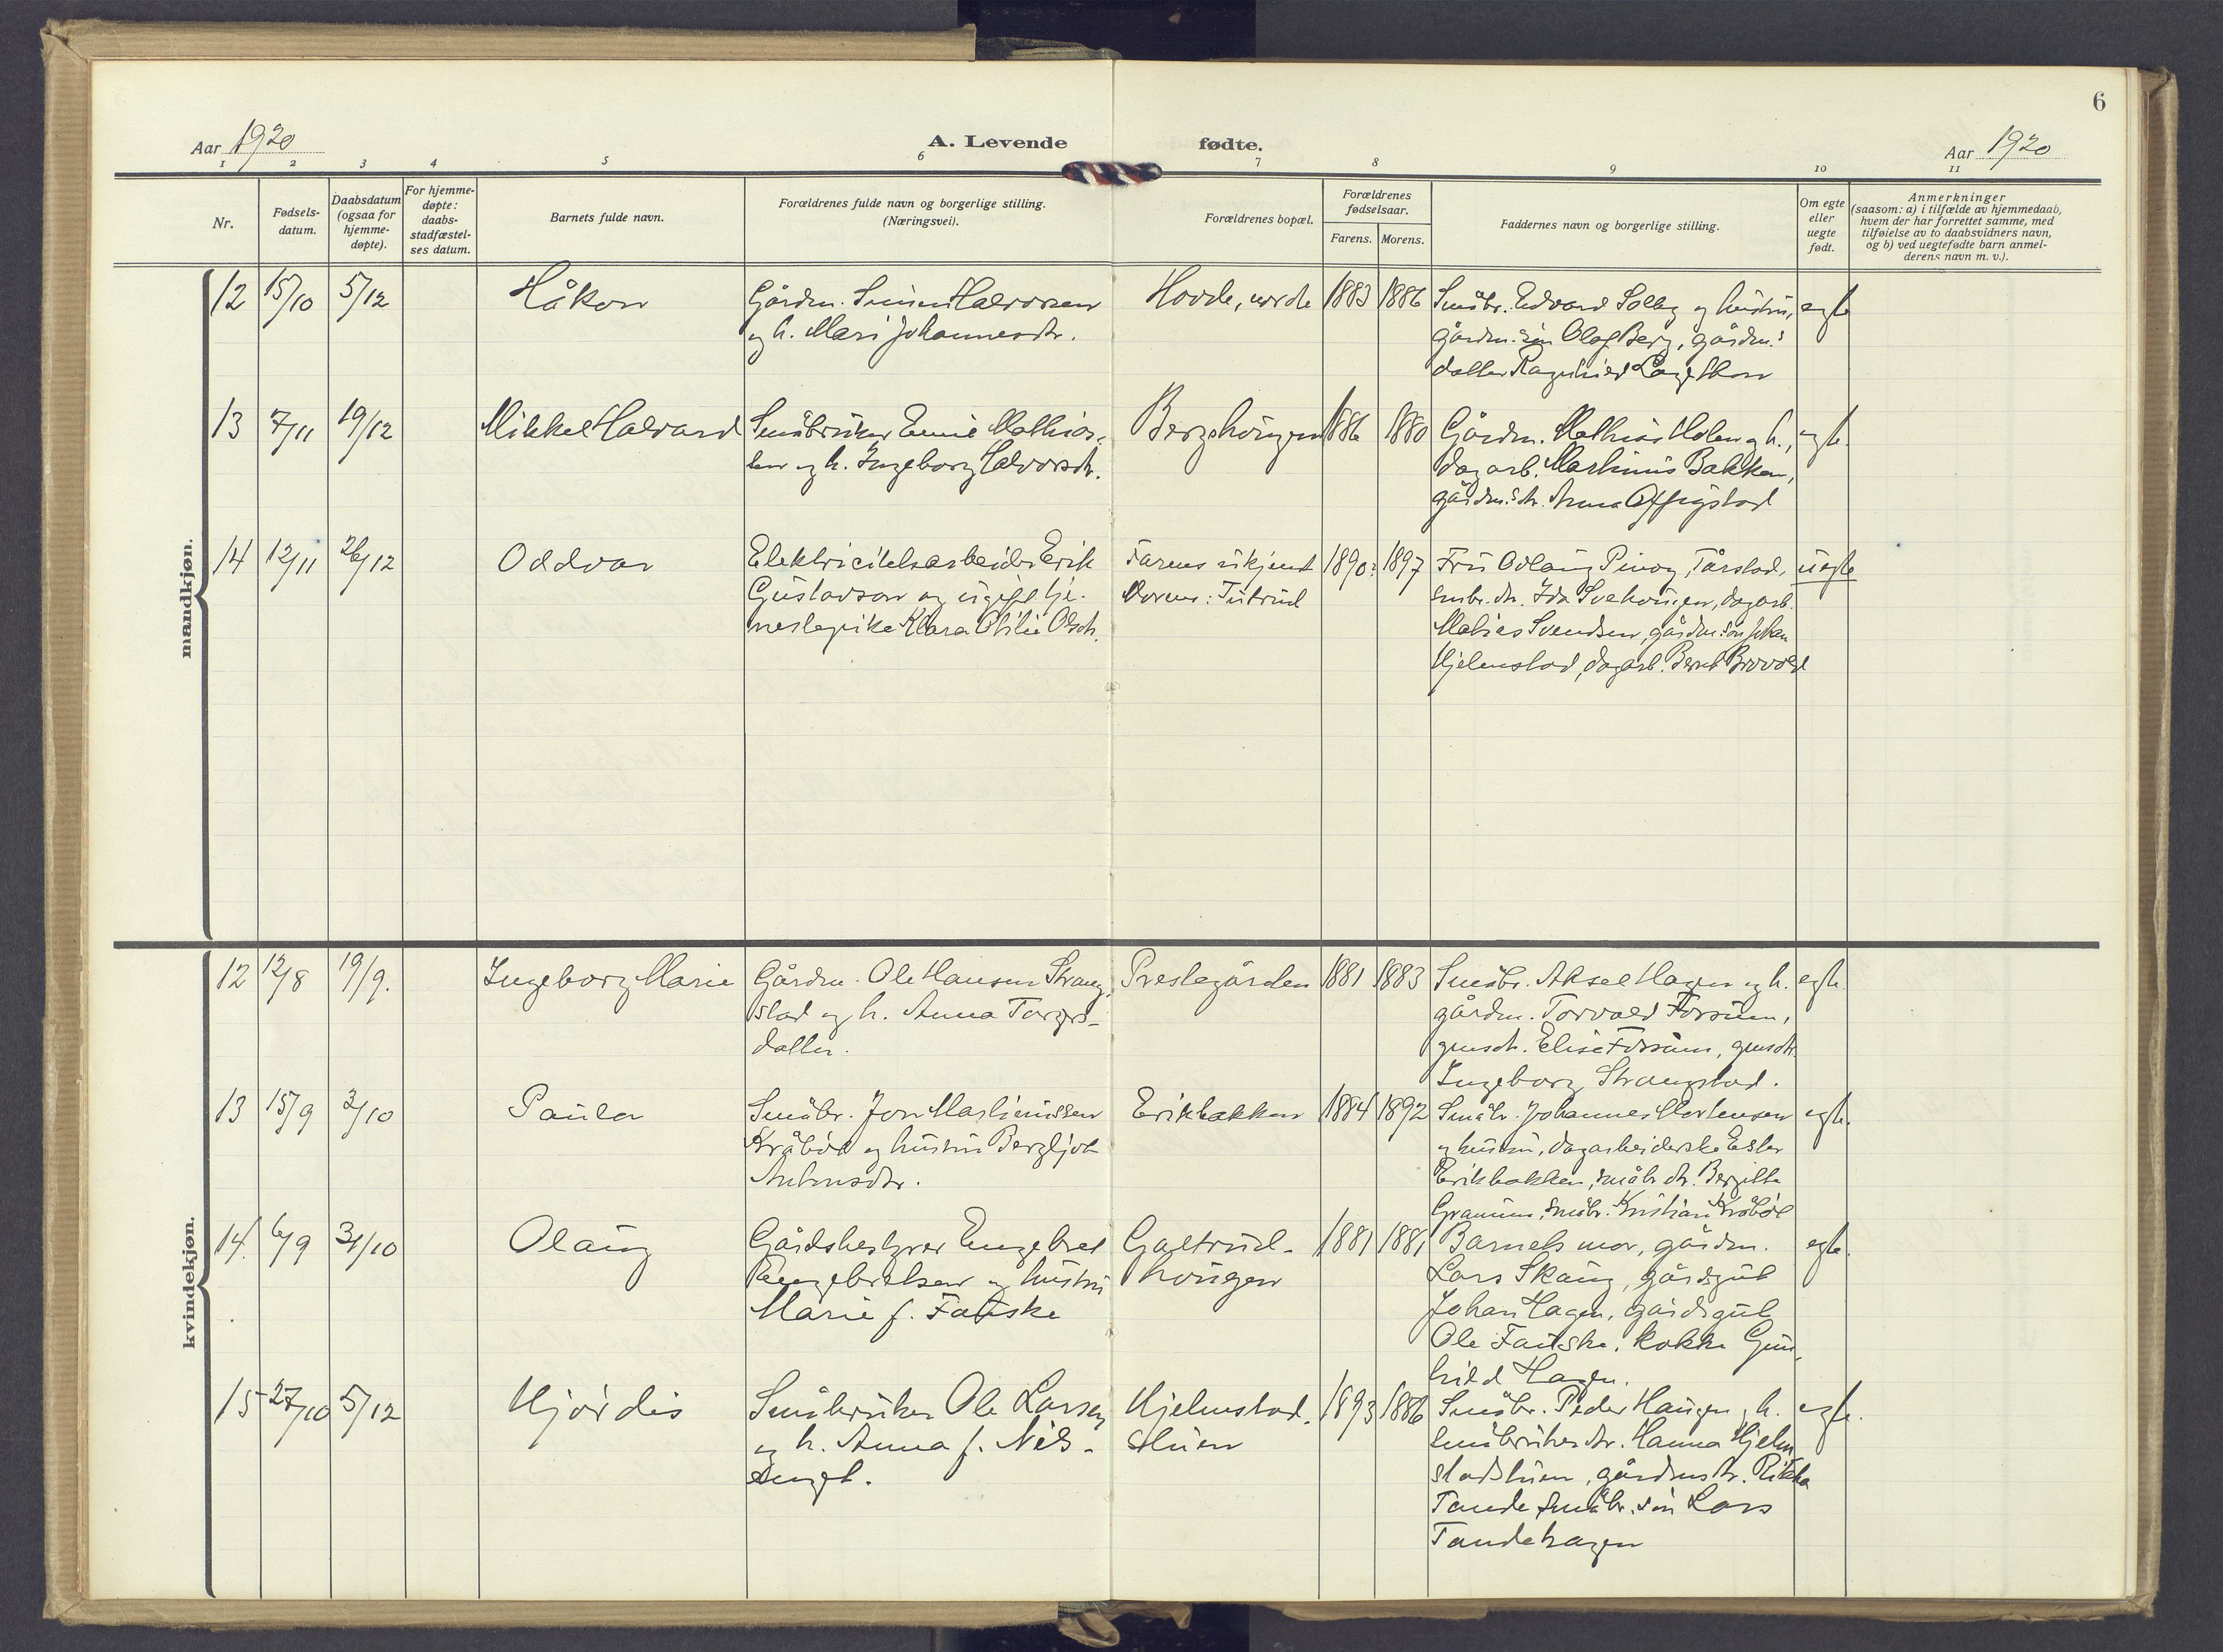 6
Aar 1920
A. Levende fødte.
Aar 1920
1 2 3 4 5 6 7 8 9 10 11
Nr.
Fødsels-
datum.
Daabsdatum
(ogsaa for
hjemme-
døpte).
For hjemme-
døpte:
daabs-
stadfæstel-
ses datum.
Barnets fulde navn.
Forældrenes fulde navn og borgerlige stilling.
(Næringsvei).
Forældrenes bopæl.
Forældrenes
fødselsaar.
Farens. Morens.
Faddernes navn og borgerlige stilling.
Om egte
eller
uegte
født.
Anmerkninger
(saasom: a) i tilfælde av hjemmedaab,
hvem der har forrettet samme, med
tilføielse av to daabsvidners navn,
og b) ved uegtefødte barn anmel-
derens navn m. v.).
mandkjøn.
12 15/10 5/12 Håkon
Gårdm. Simen Halvorsen
og h. Mari Johannesdtr.
Hovde, nordre
1883 1886
Småbr. Edvard Solby og hustru,
gårdm. sön Olaf Berg, gårdm.s
datter Ragnhild
egte
13 7/11 19/12 Mikkel Halvard
Småbruker Mathias-
sen og h. Ingeborg Halvorsdtr.
Bergehaugen
1886 1880
Gårdm. Mathias Holen og h.,
dagarb. Martinius Bakken,
gårdm.s dtr. Anna
egte.
14 12/11 26/12 Oddvar
Elektricitetsarbeider Erik
Gustavson og ugift tje-
nestepike Klara Otilie Olsdtr.
Farens ukjent
Morens: Tutrud
1890? 1897
Fru Odlaug Pinoy, Tårstad,
smbr. dtr. Ida Svehaugen, dagarb.
Matias Svendsen, gårdm. sön Johan
Hjelmstad, dagarb. Bernt Brovold
uegte
kvindekjøn.
12 12/8 19/9. Ingeborg Marie
Gårdm. Ole Hansen Strang-
stad og h. Anna Torgers-
datter.
Prestegården
1881 1883
Småbr. Aksel Hagen og h.
gårdm. Torvald Fossum,
gmsdtr. Elise Fossum, gmsdtr.
Ingeborg Strangstad.
egte.
13 15/9 3/10 Paula
Småbr. Jon Martiniussen
Kråböl og hustru Bergljot
Antonsdtr.
Erikbakken
1884 1892
Småbr. Johannes Mortensen
og hustru, dagarbeiderske Ester
Erikbakken, småbr. dtr. Bergitte
Granum, småbr. Kristian Kråböl
egte.
14. 6/9 31/10 Olaug
Gårdsbestyrer Engebret
Engebretsen og hustru
Marie f. Fauske
Galtrud-
haugen
1881 1881
Barnets mor, gårdm.
Lars Skaug, gårdgut
Johan Hagen, gårdsgut
Ole Fauske, kokke Gun-
hild Hagen.
egte.
15 27/10 5/12 Hjördis
Småbruker Ole Larsen
og h. Anna f. Nils-
enget.
Hjelmstad-
stuen
1893 1886
Småbr. Peder Haugen og h.
småbrukerdtr. Hanna Hjelm-
stadstuen, gårdmsdtr. Rikka
Tande småbr. sön Lars
Tandehagen
egte.